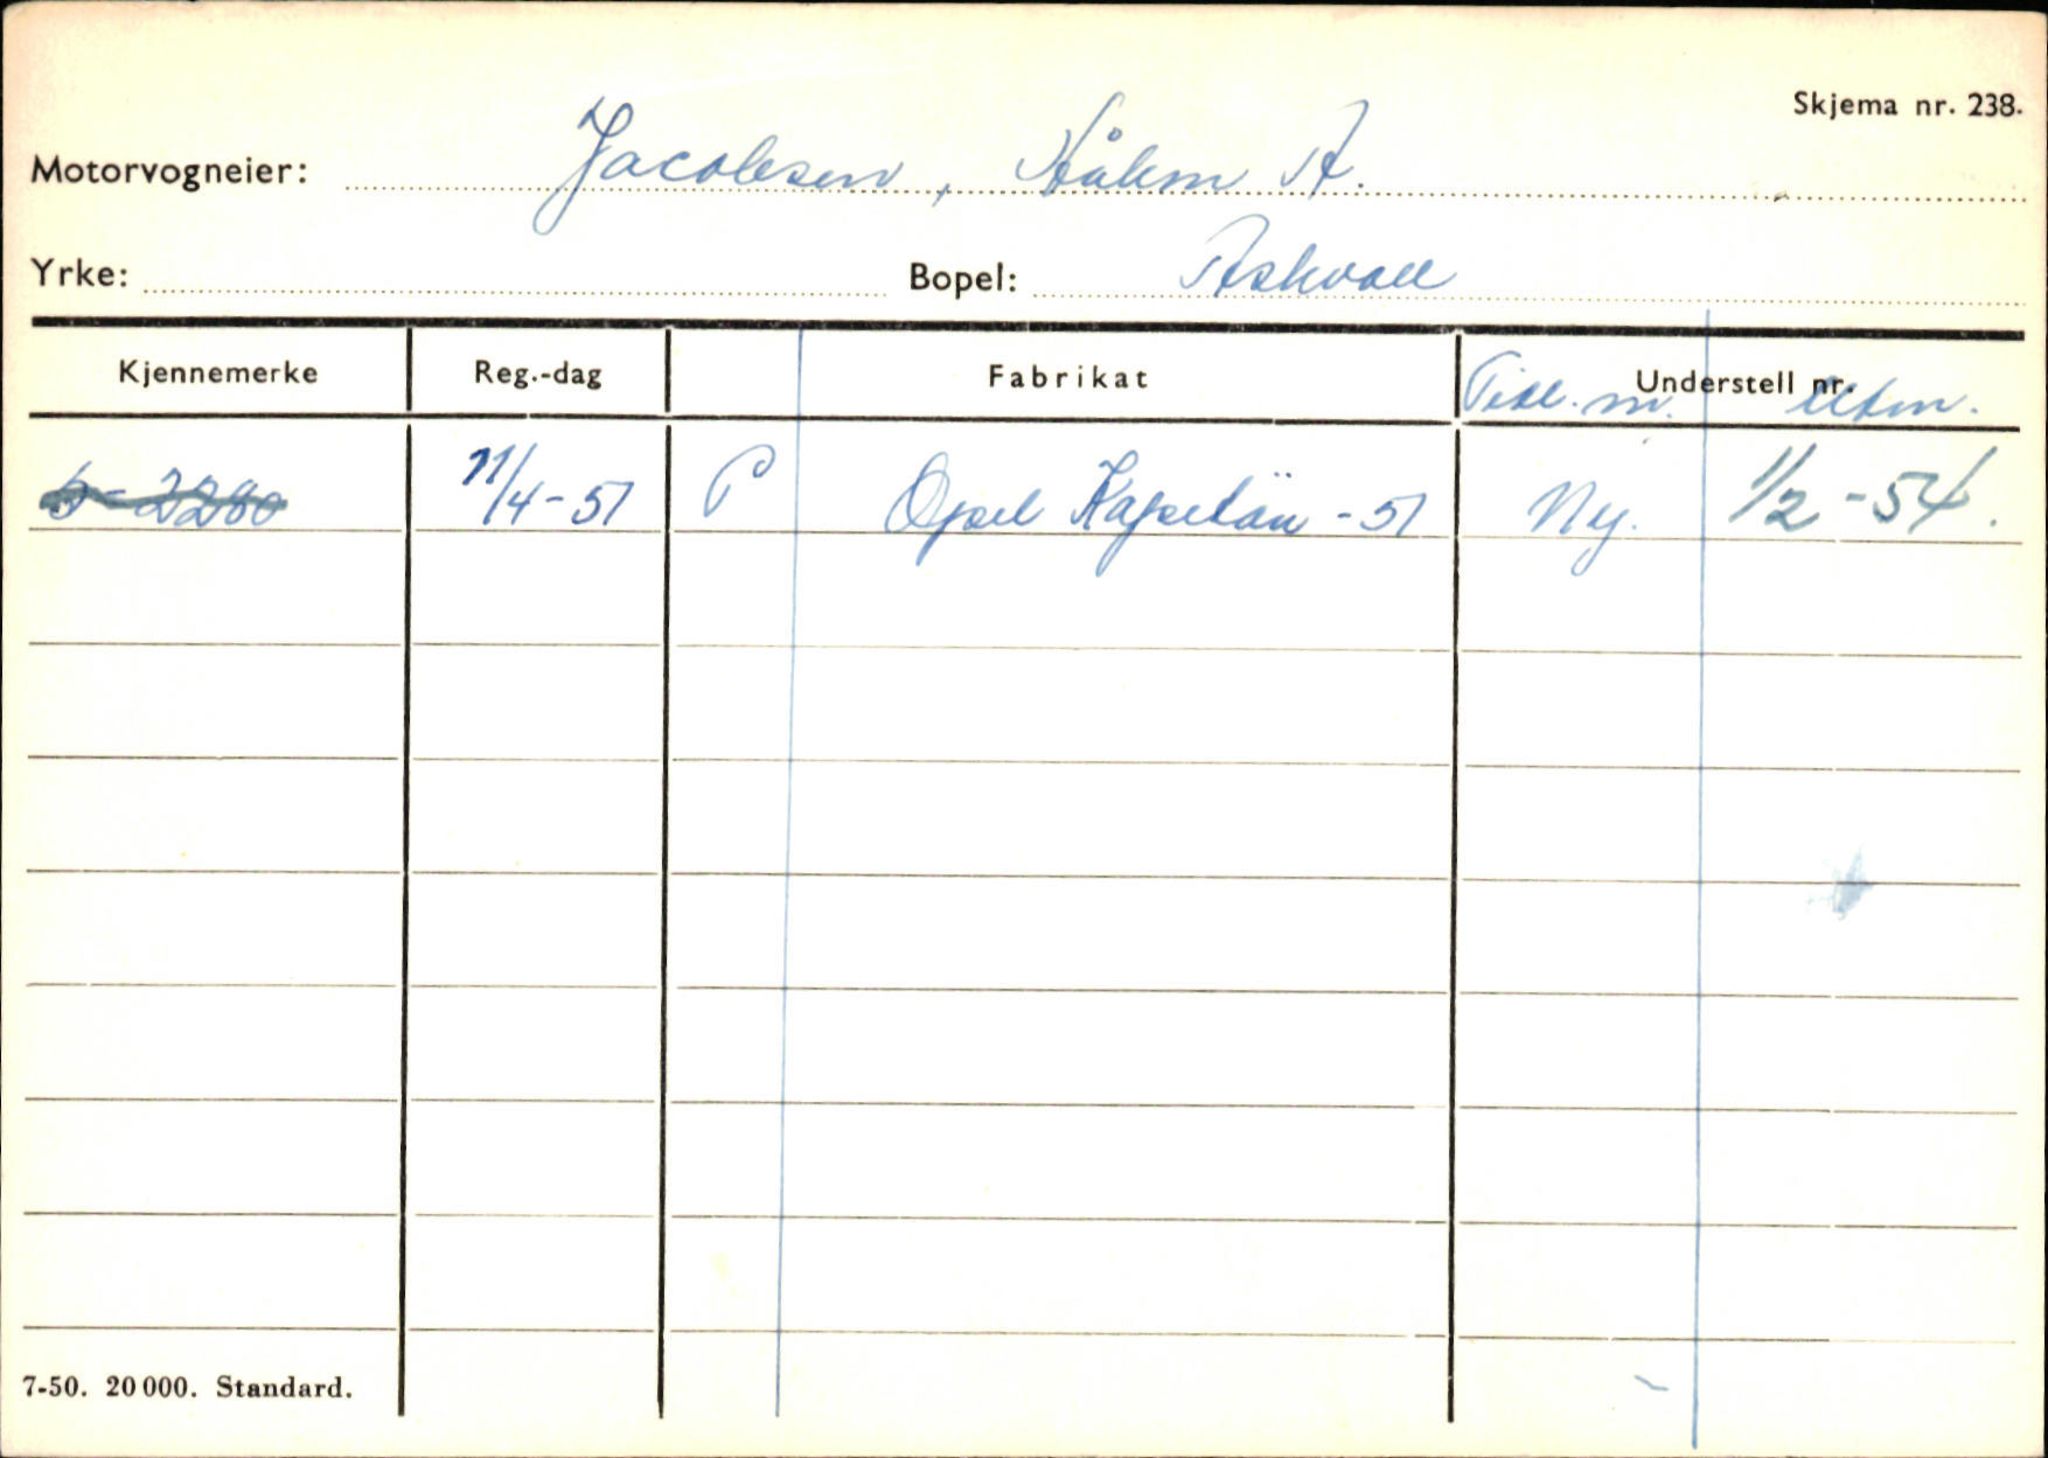 Skjema nr. 238.
Motorvogneier: Jacobsen, Håkon A.
Yrke: Bopel: Askvoll
Kjennemerke Reg.-dag Fabrikat Understell nr. Tidl. m. Utm.
S-2280 11/4-51 P Opel Kapitän -51 Ny. 1/2-54.
7-50. 20 000. Standard.